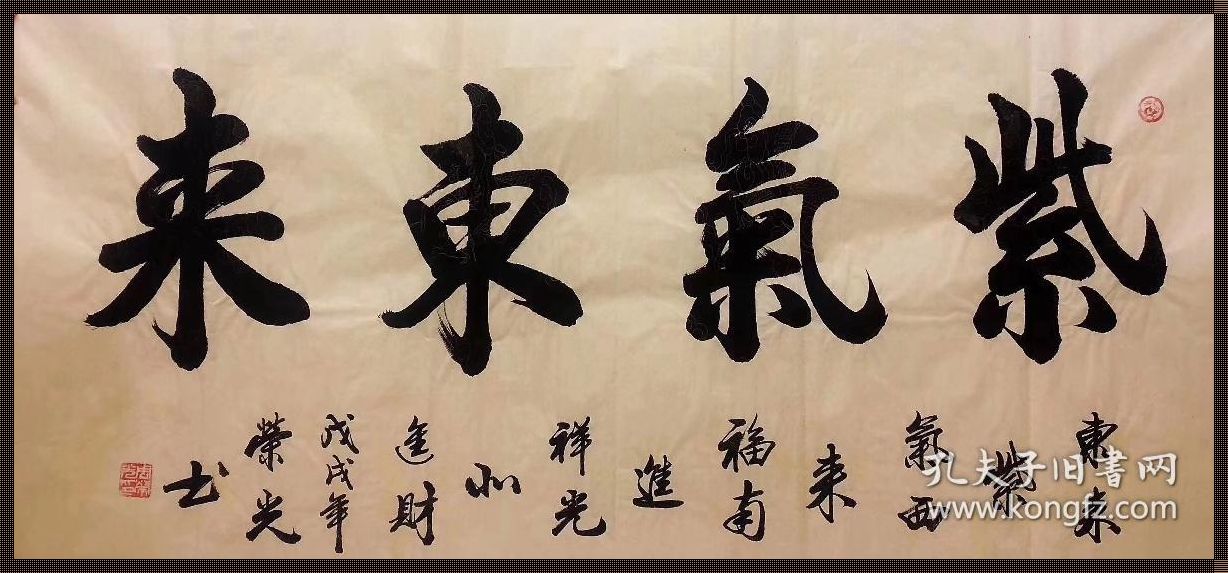 紫氣東来
東来
紫
氣西
来
福南
進
祥光
北
進財
戊戌年
榮光
书
孔夫子旧書网
www.kongfz.com